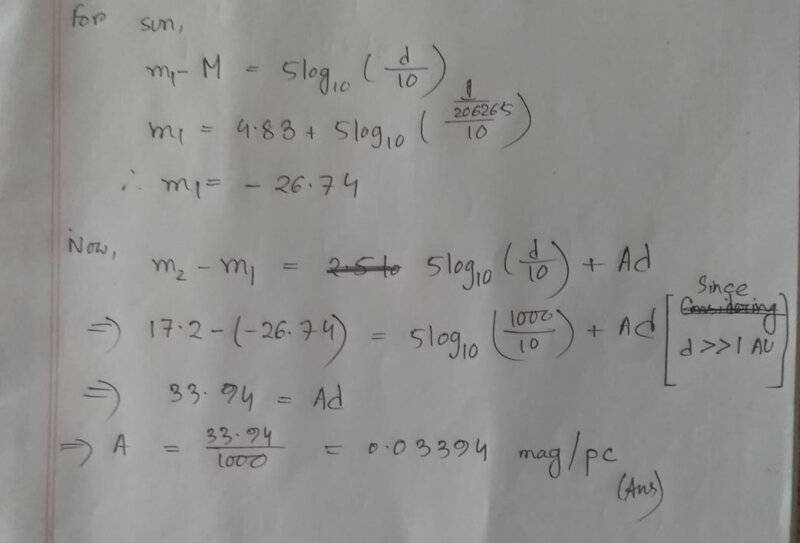 For sun,
m₁ - M = 5log₁₀ (d/10)
m₁ = 4.83 + 5log₁₀ ((1/206265)/10)
∴ m₁ = - 26.74
Now,
m₂ - m₁ = 2.5 lo 5log₁₀ (d/10) + Ad
⇒ 17.2 - (-26.74) = 5log₁₀ (1000/10) + Ad [Considering Since d >> 1 AU]
⇒ 33.94 = Ad
⇒ A = 33.94/1000 = 0.03394 mag/pc
(Ans)